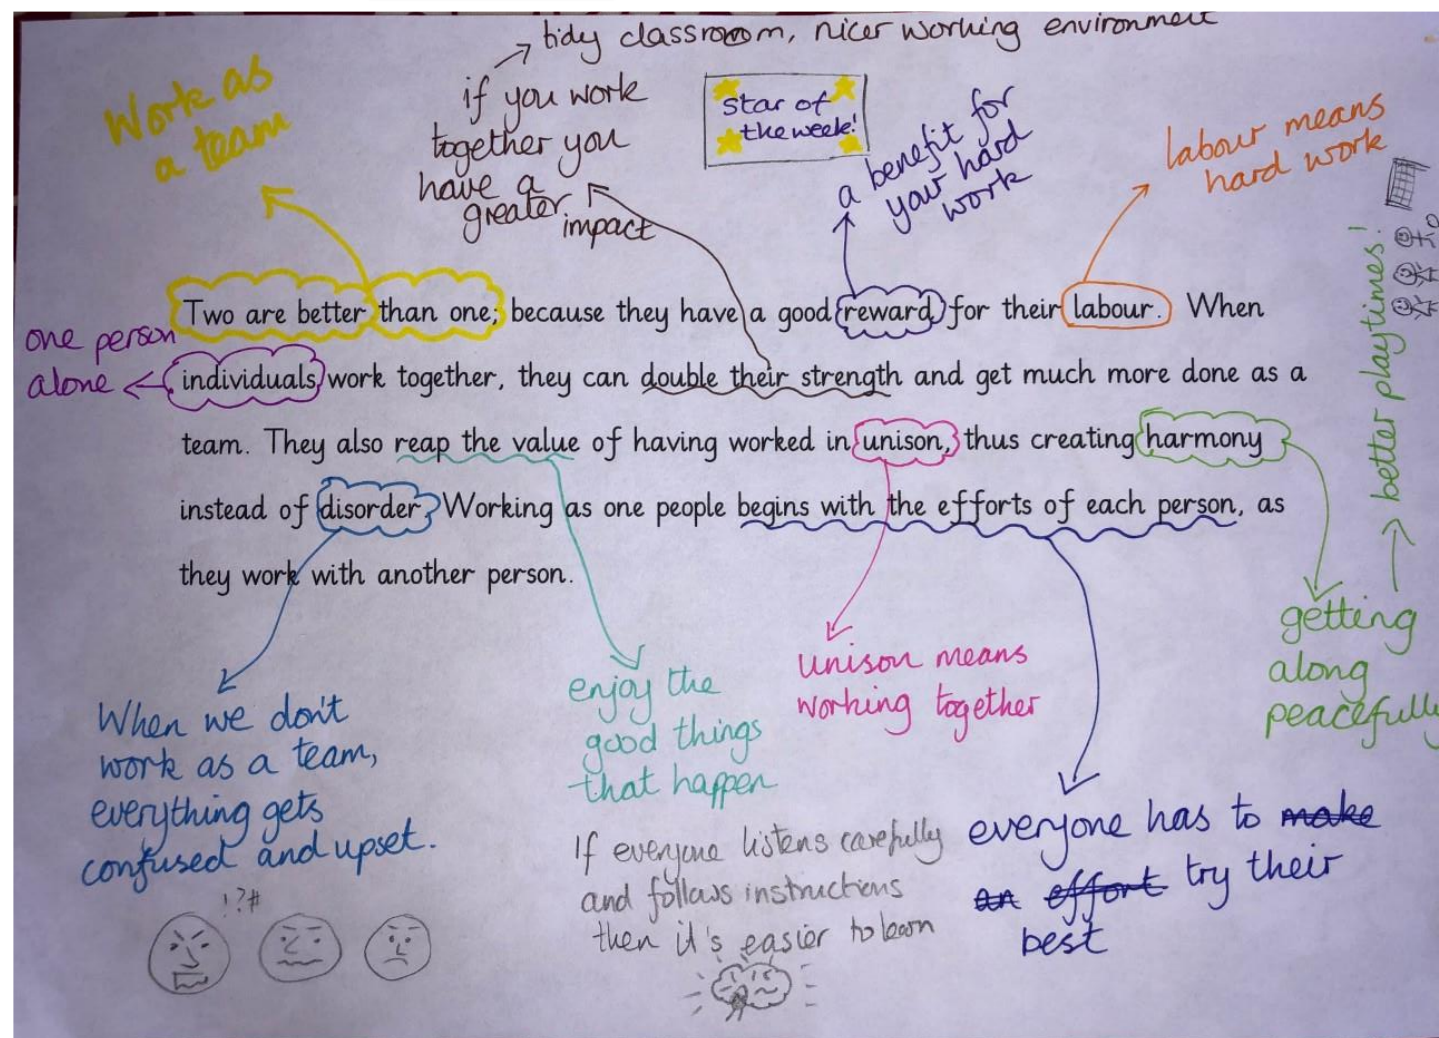 tidy classroom, nicer working environment
if you work
together you
have a
greater impact
Star of
the week!
a benefit for
your hard
work
labour means
hard work
Work as
a team
Two are better than one; because they have a good reward for their labour. When
one person
alone
individuals work together, they can double their strength and get much more done as a
team. They also reap the value of having worked in unison, thus creating harmony
instead of disorder. Working as one people begins with the efforts of each person, as
they work with another person.
better playtimes!
getting
along
peacefully
unison means
working together
enjoy the
good things
that happen
When we don't
work as a team,
everything gets
confused and upset.
!?#
If everyone listens carefully
and follows instructions
then it's easier to learn
everyone has to make
an effort try their
best